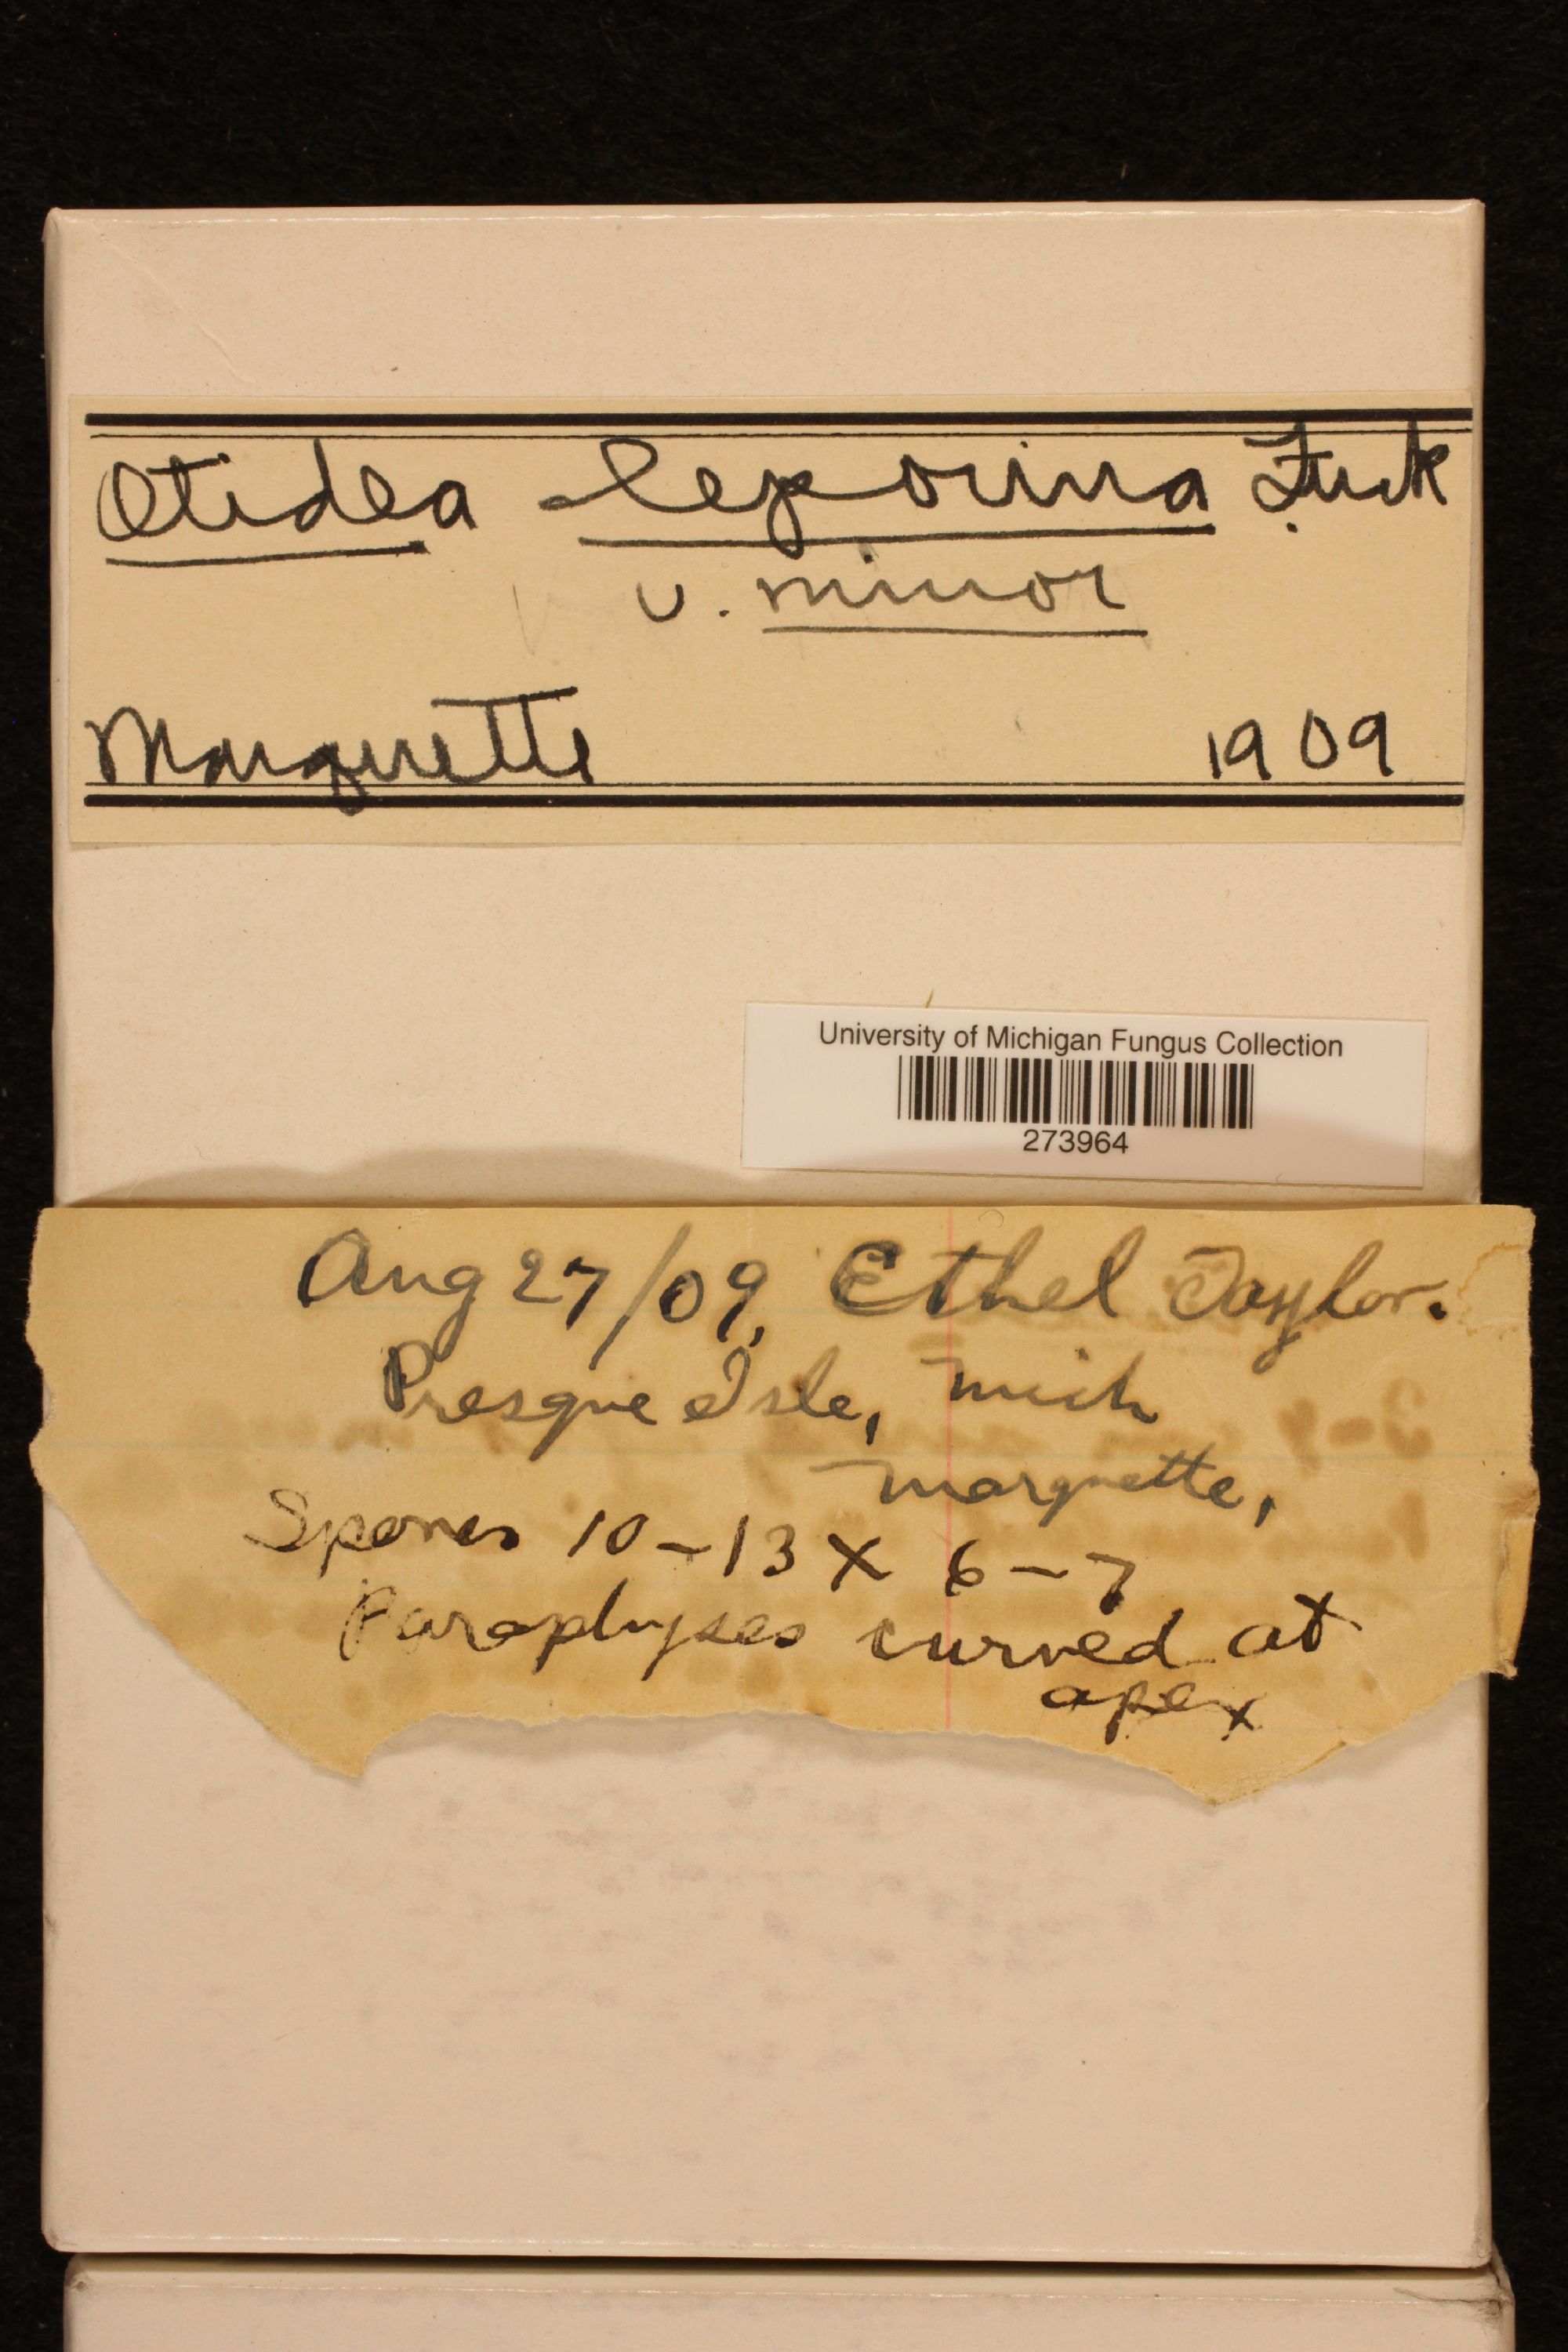 Otidea leporina Fuck
v. minor
Marquette 1909
University of Michigan Fungus Collection
273964
Aug 27/09, Ethel Taylor.
Presque Isle, Mich
Marquette,
Spores 10-13 X 6-7
Paraphyses curved at
apex